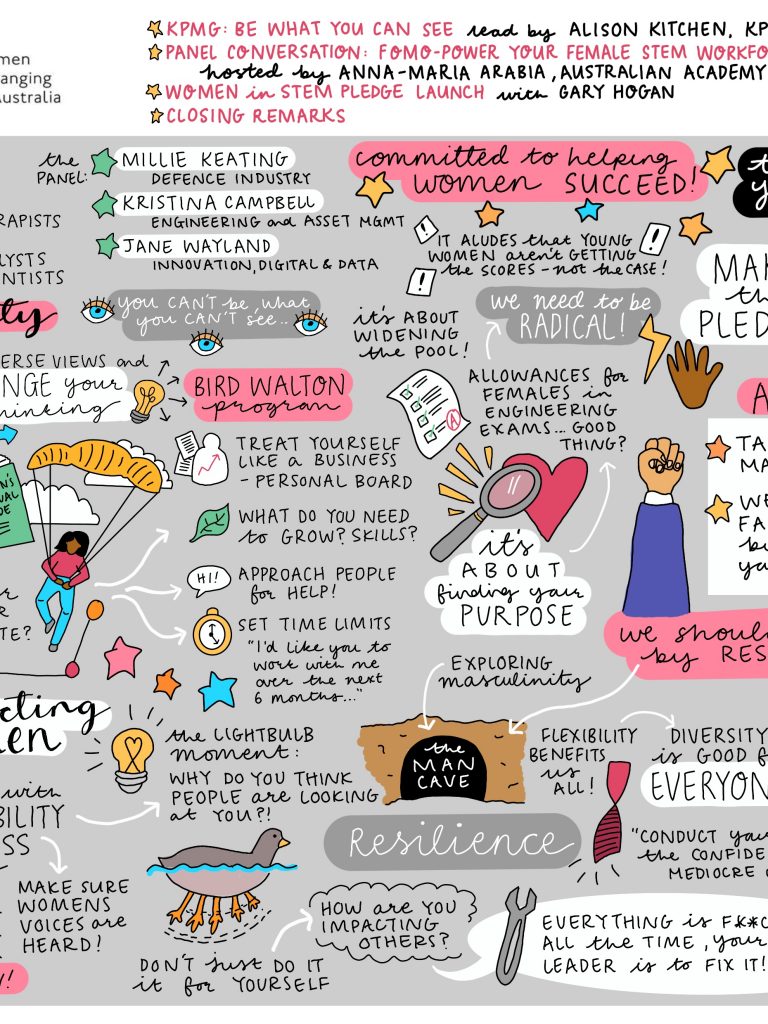 men
anging
Australia
KPMG: BE WHAT YOU CAN SEE read by ALISON KITCHEN, KP
PANEL CONVERSATION: FOMO-POWER YOUR FEMALE STEM WORKFO
hosted by ANNA-MARIA ARABIA, AUSTRALIAN ACADEMY
WOMEN in STEM PLEDGE LAUNCH with GARY HOGAN
CLOSING REMARKS
the
PANEL:
MILLIE KEATING
DEFENCE INDUSTRY
KRISTINA CAMPBELL
ENGINEERING and ASSET MGMT
JANE WAYLAND
INNOVATION, DIGITAL & DATA
RAPISTS
LYSTS
ENTISTS
committed to helping
WOMEN SUCCEED!
IT ALUDES that YOUNG
WOMEN aren't GETTING
the SCORES - not the CASE!
MAK
th
PLED
ty
YOU CAN'T be, what
you CAN'T see...
it's ABOUT
WIDENING
the POOL!
we need to be
RADICAL!
ERSE VIEWS and
NGE your
thinking
BIRD WALTON
program
ALLOWANCES for
FEMALES in
ENGINEERING
EXAMS... GOOD
THING?
A
A
TA
MA
WE
FA
bu
ya
N'S
UAL
DE
TREAT YOURSELF
LIKE A BUSINESS
- PERSONAL BOARD
WHAT DO YOU NEED
to GROW? SKILLS?
HI!
APPROACH PEOPLE
for HELP!
SET TIME LIMITS
"I'd like you to
work with me
over the next
6 months..."
R
R
TE?
it's
ABOUT
finding your
PURPOSE
we shoul
by RES
EXPLORING
masculinity
the
MAN
CAVE
FLEXIBILITY
BENEFITS
us
ALL!
DIVERSITY
is GOOD f
EVERYON
cting
EN
the LIGHTBULB
moment:
WHY DO YOU THINK
PEOPLE are LOOKING
at YOU?!
with
BILITY
SS
MAKE SURE
WOMENS
VOICES are
HEARD!
Y!
Resilience
"CONDUCT you
the CONFIDE
MEDIOCRE
HOW are YOU
IMPACTING
OTHERS?
DON'T just DO IT
it for YOURSELF
EVERYTHING is F*#C
ALL the TIME, your
LEADER is to FIX IT!